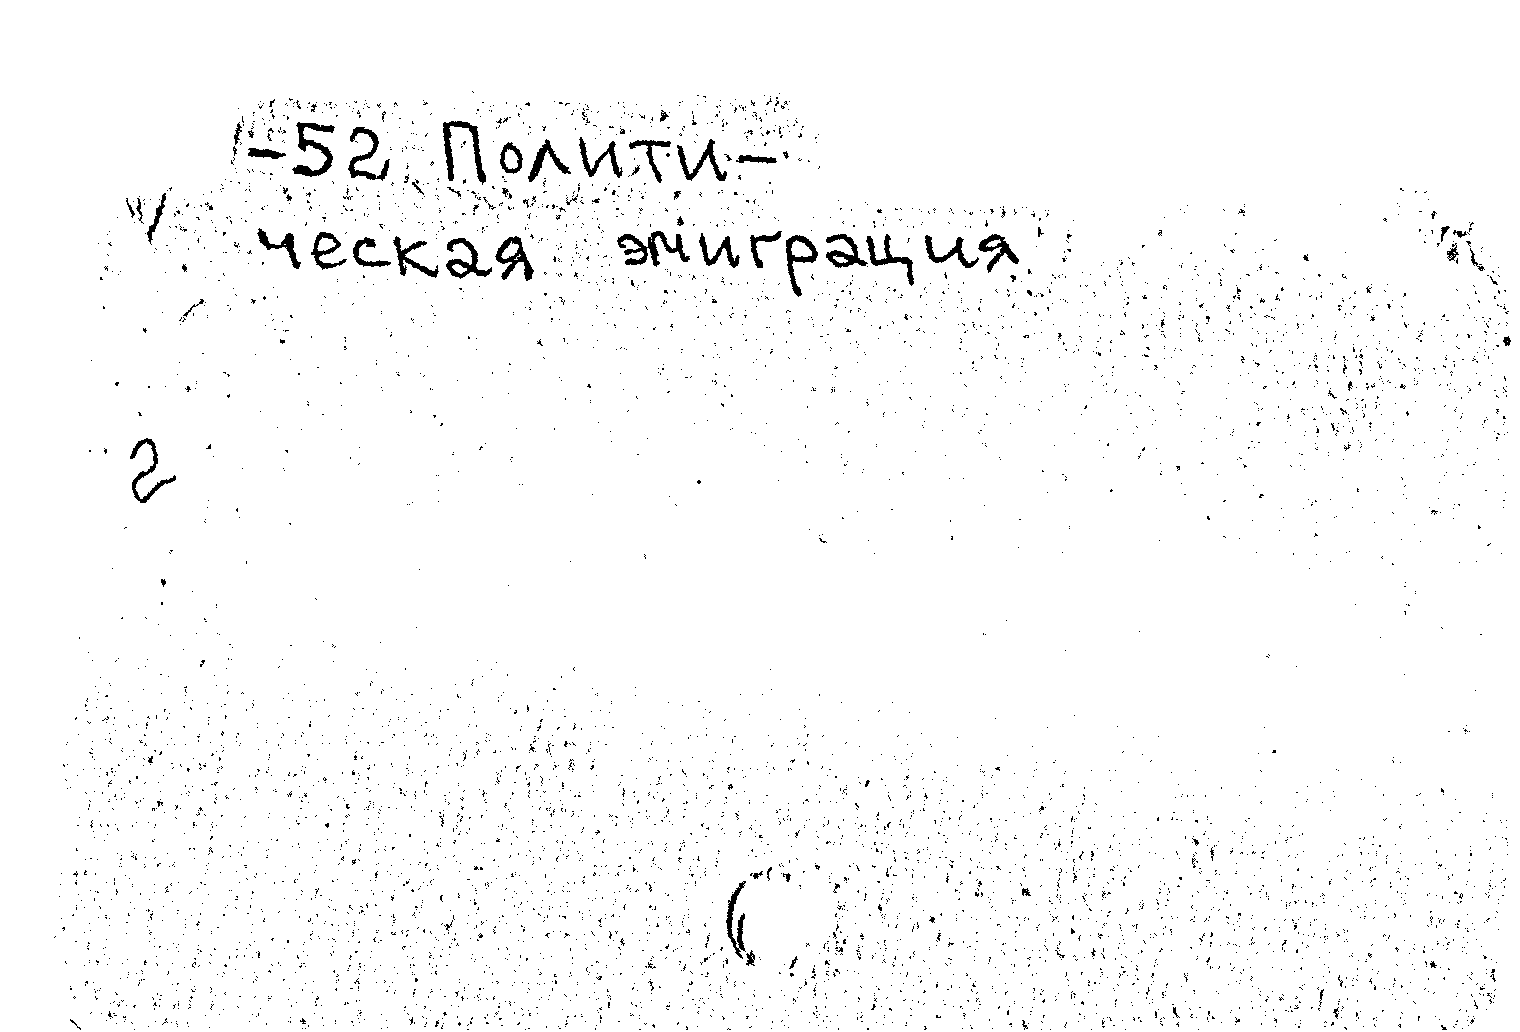 -52 Полити-
ческая эмиграция
2